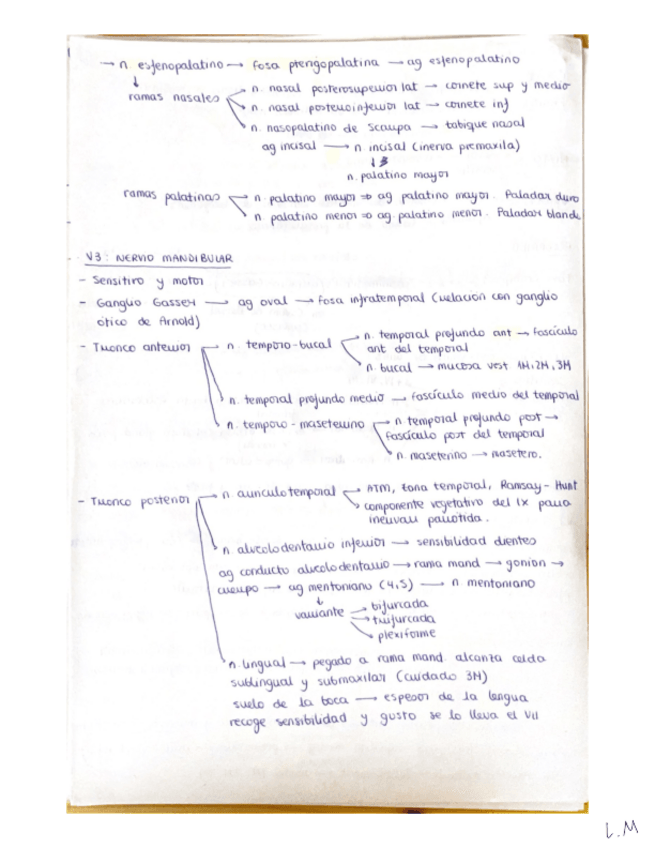 → n. esfenopalatino → fosa pterigopalatina → ag esfenopalatino
↓
ramas nasales → n. nasal posterosuperior lat → cornete sup y medio
→ n. nasal posteroinferior lat → cornete inf
→ n. nasopalatino de Scarpa → tabique nasal
ag incisal → n incisal (inerva premaxila)
↓
n. palatino mayor
ramas palatinas → n. palatino mayor ⇒ ag palatino mayor. Paladar duro
→ n. palatino menor ⇒ ag. palatino menor. Paladar blando
V3: NERVIO MANDIBULAR
- Sensitivo y motor
- Ganglio Gasser → ag oval → fosa infratemporal (relación con ganglio
ótico de Arnold)
- Tronco anterior → n. temporo-bucal → n. temporal profundo ant → fascículo
ant del temporal
→ n. bucal → mucosa vest 1M, 2M, 3M
→ n. temporal profundo medio → fascículo medio del temporal
→ n. temporo-maseterino → n. temporal profundo post →
fascículo post del temporal
→ n. maseterino → masetero.
- Tronco posterior → n. auriculotemporal → ATM, zona temporal, Ramsay-Hunt
→ componente vegetativo del IX para
inervar parótida.
→ n alveolodentario inferior → sensibilidad dientes
ag conducto alveolodentario → rama mand → gonion →
cuerpo → ag mentoniano (4,5) → n mentoniano
↓
variante → bifurcada
→ trifurcada
→ plexiforme
→ n. lingual → pegado a rama mand. alcanza celda
sublingual y submaxilar (cuidado 3M)
suelo de la boca → espesor de la lengua
recoge sensibilidad y gusto se lo lleva el VII
L.M